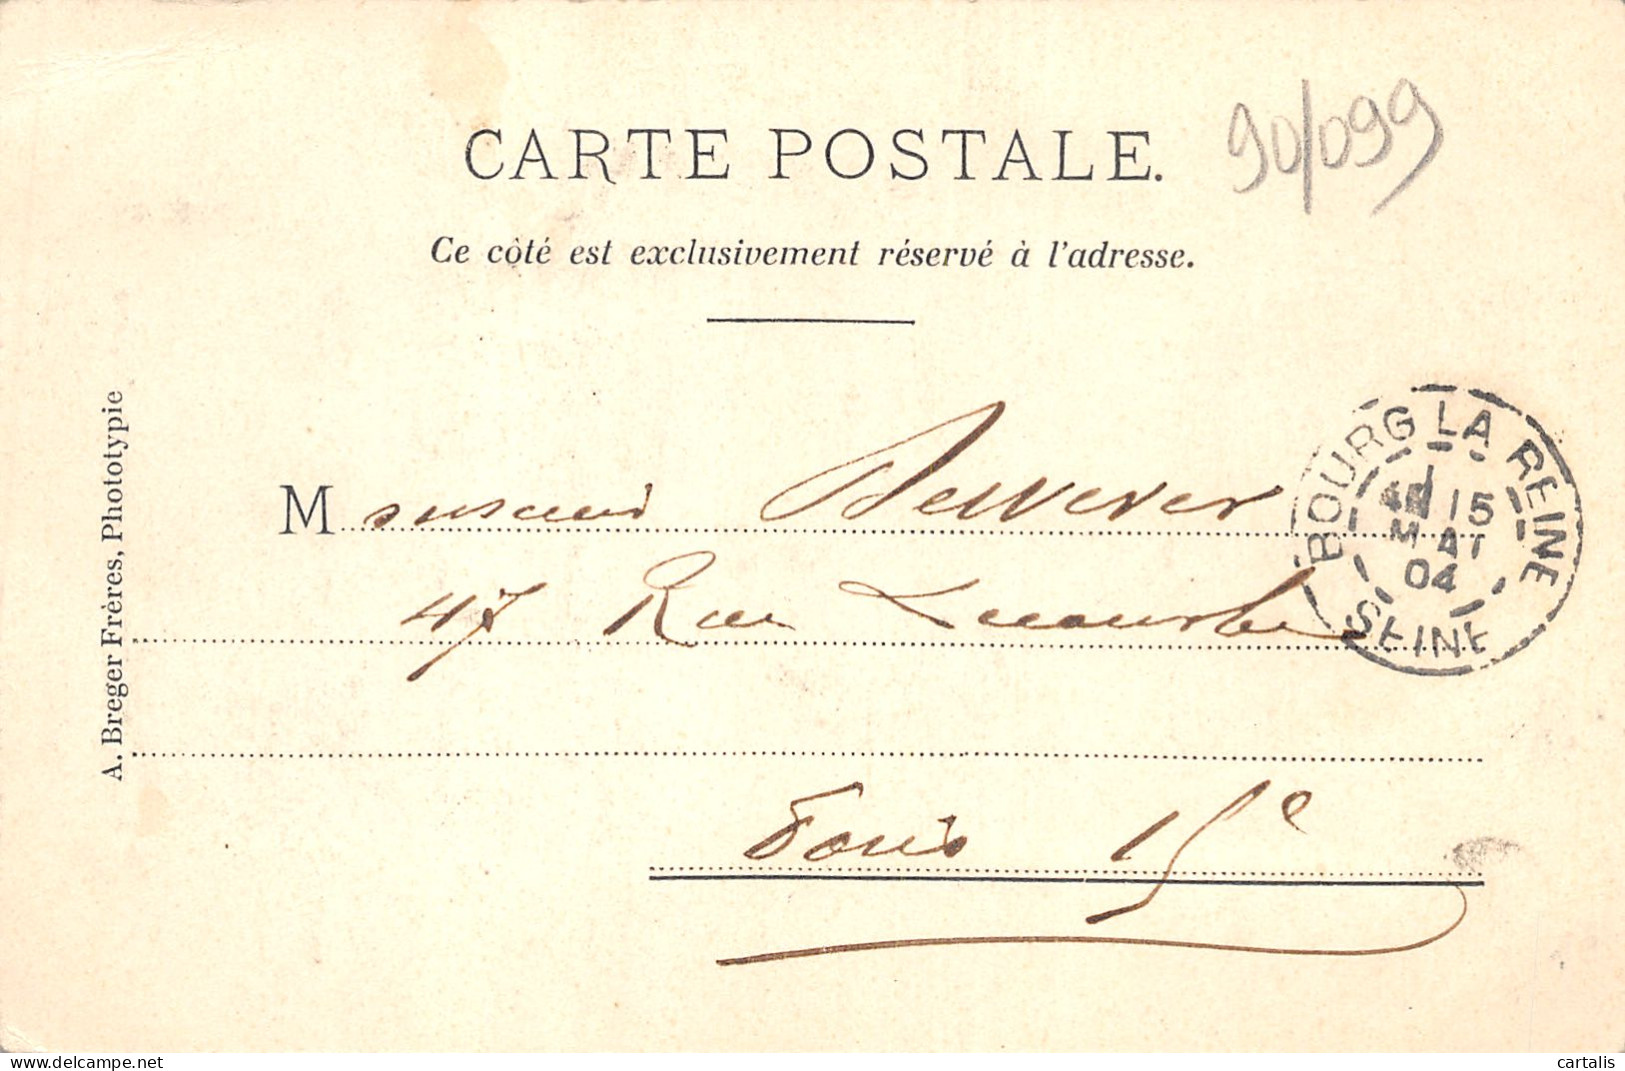 CARTE POSTALE.
90/099
Ce côté est exclusivement réservé à l'adresse.
A. Breger Frères, Phototypie
M
47 Rue Lecourbe
Paris 15e
BOURG LA REINE
15
MAI
04
SEINE
cartalis